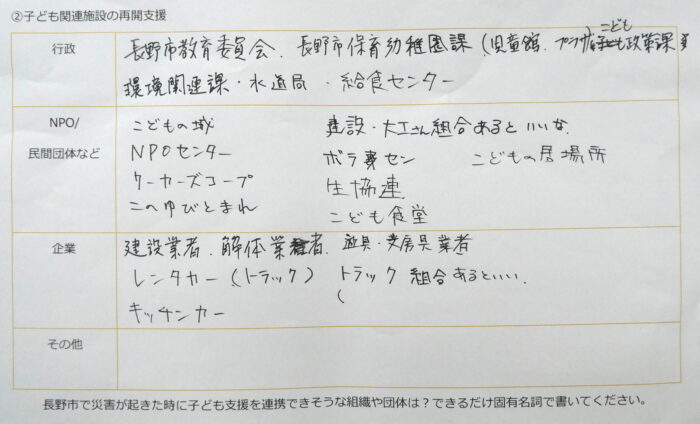 ②子ども関連施設の再開支援
行政
長野市教育委員会、長野市保育幼稚園課（児童館、こども政策課
環境関連課・水道局・給食センター
NPO/
民間団体など
こどもの城 建設・大工さん組合あるといいな
NPOセンター ボラセン こどもの居場所
ワーカーズコープ 生協連
このゆびとまれ こども食堂
企業
建設業者、解体業者、遊具・文房具業者
レンタカー（トラック） トラック組合あるといい、
キッチンカー
その他
長野市で災害が起きた時に子ども支援を連携できそうな組織や団体は？できるだけ固有名詞で書いてください。